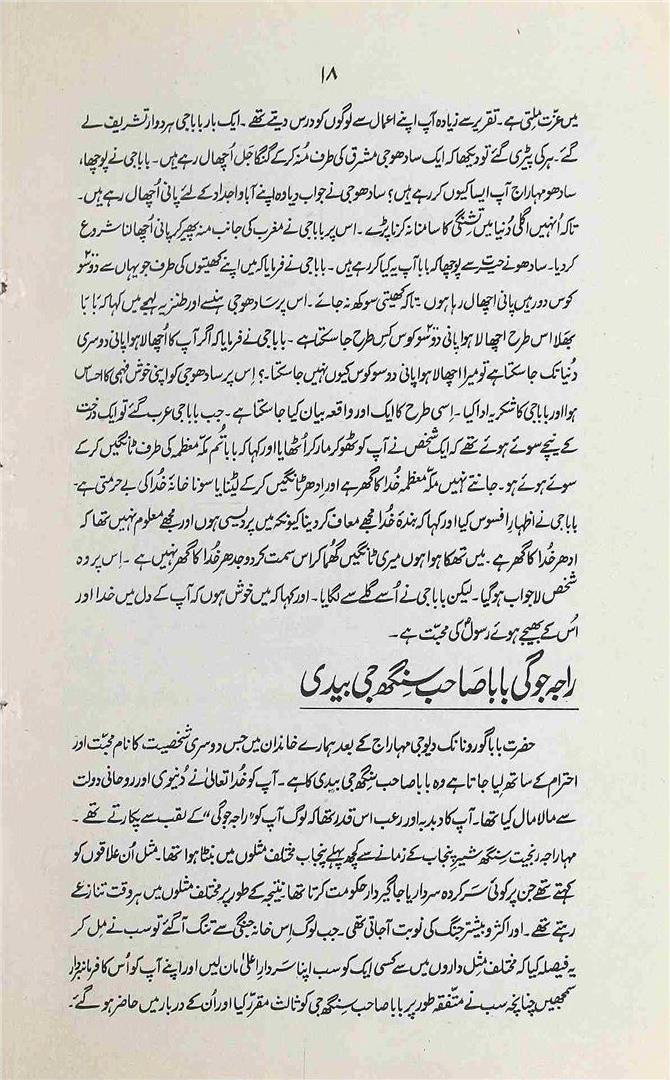 ۱۸
میں عزّت ملتی ہے۔ تقریر سے زیادہ آپ اپنے اعمال سے لوگوں کو درس دیتے تھے۔ ایک بار بابا جی ہردوار تشریف لے
گئے۔ ہر کی پیڑی گئے تو دیکھا کہ ایک سادھو جی مشرق کی طرف مُنہ کر کے گنگا جل اُچھال رہے ہیں۔ بابا جی نے پوچھا،
سادھو مہاراج آپ ایسا کیوں کر رہے ہیں؟ سادھو جی نے جواب دیا وہ اپنے آبا و اجداد کے لئے پانی اُچھال رہے ہیں۔
تاکہ اُنہیں اگلی دُنیا میں تشنگی کا سامنا نہ کرنا پڑے۔ اس پر بابا جی نے مغرب کی جانب منہ پھیر کر پانی اُچھالنا شروع
کر دیا۔ سادھو نے حیرت سے پوچھا کہ بابا آپ یہ کیا کر رہے ہیں۔ بابا جی نے فرمایا کہ میں اپنے کھیتوں کی طرف جو یہاں سے دو سو ۲۰۰
کوس دور ہیں پانی اچھال رہا ہوں۔ تاکہ کھیتی سوکھ نہ جائے۔ اس پر سادھو جی ہنسے اور طنزیہ لہجے میں کہا کہ بابا
بھلا اس طرح اچھالا ہوا پانی دو سو ۲۰۰ کوس کس طرح جا سکتا ہے۔ بابا جی نے فرمایا کہ اگر آپ کا اُچھالا ہوا پانی دوسری
دُنیا تک جا سکتا ہے تو میرا اچھالا ہوا پانی دو سو کوس کیوں نہیں جا سکتا۔؟ اِس پر سادھو جی کو اپنی خوش فہمی کا احساس
ہوا اور بابا جی کا شکریہ ادا کیا۔ اِسی طرح کا ایک اور واقعہ بیان کیا جا سکتا ہے۔ جب بابا جی عرب گئے تو ایک درخت
کے نیچے سوئے ہوئے تھے کہ ایک شخص نے آپ کو ٹھوکر مار کر اُٹھایا اور کہا کہ بابا تُم مکّہ معظمہ کی طرف ٹانگیں کر کے
سوئے ہوئے ہو۔ جانتے نہیں مکّہ معظمہ خُدا کا گھر ہے اور ادھر ٹانگیں کر کے لیٹنا یا سونا خانۂ خُدا کی بے حرمتی ہے۔
بابا جی نے اظہارِ افسوس کیا اور کہا کہ بندۂ خُدا مجھے معاف کر دینا کیونکہ میں پردیسی ہوں اور مجھے معلوم نہیں تھا کہ
ادھر خُدا کا گھر ہے۔ میں تھکا ہوا ہوں میری ٹانگیں گھُما کر اس سمت کر دو جدھر خُدا کا گھر نہیں ہے۔ اِس پر وہ
شخص لاجواب ہو گیا۔ لیکن بابا جی نے اُسے گلے سے لگایا۔ اور کہا کہ میں خوش ہوں کہ آپ کے دل میں خدا اور
اُس کے بھیجے ہوئے رسولؐ کی محبّت ہے۔
راجہ جوگی بابا صاحب سنگھ جی بیدی
حضرت بابا گورو نانک دیو جی مہاراج کے بعد ہمارے خاندان میں جس دوسری شخصیت کا نام محبّت اور
احترام کے ساتھ لیا جاتا ہے وہ بابا صاحب سنگھ جی بیدی کا ہے۔ آپ کو خُدا تعالیٰ نے دُنیوی اور روحانی دولت
سے مالا مال کیا تھا۔ آپ کا دبدبہ اور رعب اس قدر تھا کہ لوگ آپ کو "راجہ جوگی" کے لقب سے پکارتے تھے۔
مہاراجہ رنجیت سنگھ شیرِ پنجاب کے زمانے سے کچھ پہلے پنجاب مختلف مثلوں میں بنٹا ہوا تھا۔ مثل اُن علاقوں کو
کہتے تھے جن پر کوئی سَر کردہ سردار یا جاگیر دار حکومت کرتا تھا نتیجہ کے طور پر مختلف مثلوں میں ہر وقت تنازعے
رہتے تھے۔ اور اکثر و بیشتر جنگ کی نوبت آ جاتی تھی۔ جب لوگ اِس خانہ جنگی سے تنگ آ گئے تو سب نے مِل کر
یہ فیصلہ کیا کہ مختلف مثل داروں میں سے کسی ایک کو سب اپنا سَردارِ اعلیٰ مان لیں اور اپنے آپ کو اُس کا فرمانبردار
سمجھیں چنانچہ سب نے متّفقہ طور پر بابا صاحب سنگھ جی کو ثالث مقرّر کیا اور اُن کے دربار میں حاضر ہو گئے۔